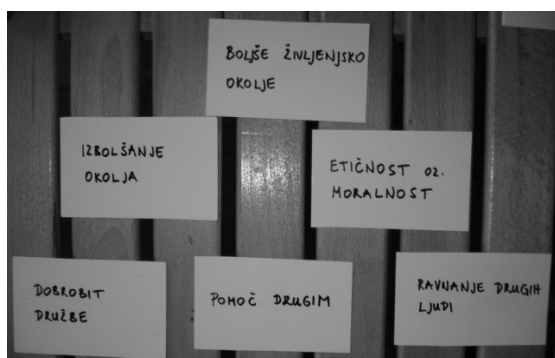 BOLJŠE ŽIVLJENJSKO
OKOLJE
IZBOLŠANJE
OKOLJA
ETIČNOST OZ.
MORALNOST
DOBROBIT
DRUŽBE
POMOČ DRUGIM
RAVNANJE DRUGIH
LJUDI